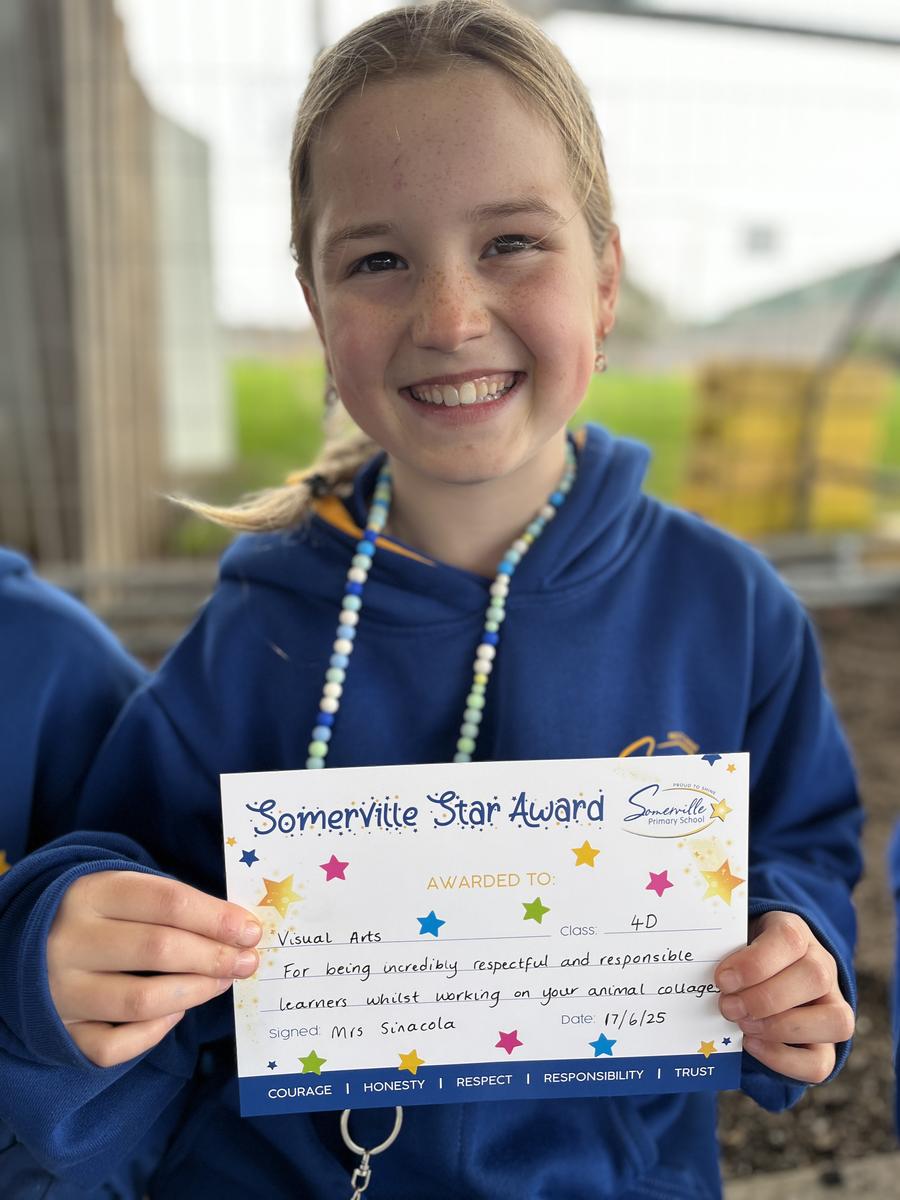 Somerville Star Award
PROUD TO SHINE
Somerville
Primary School
AWARDED TO:
Visual Arts Class: 4D
For being incredibly respectful and responsible
learners whilst working on your animal collages
Signed: Mrs Sinacola Date: 17/6/25
COURAGE | HONESTY | RESPECT | RESPONSIBILITY | TRUST